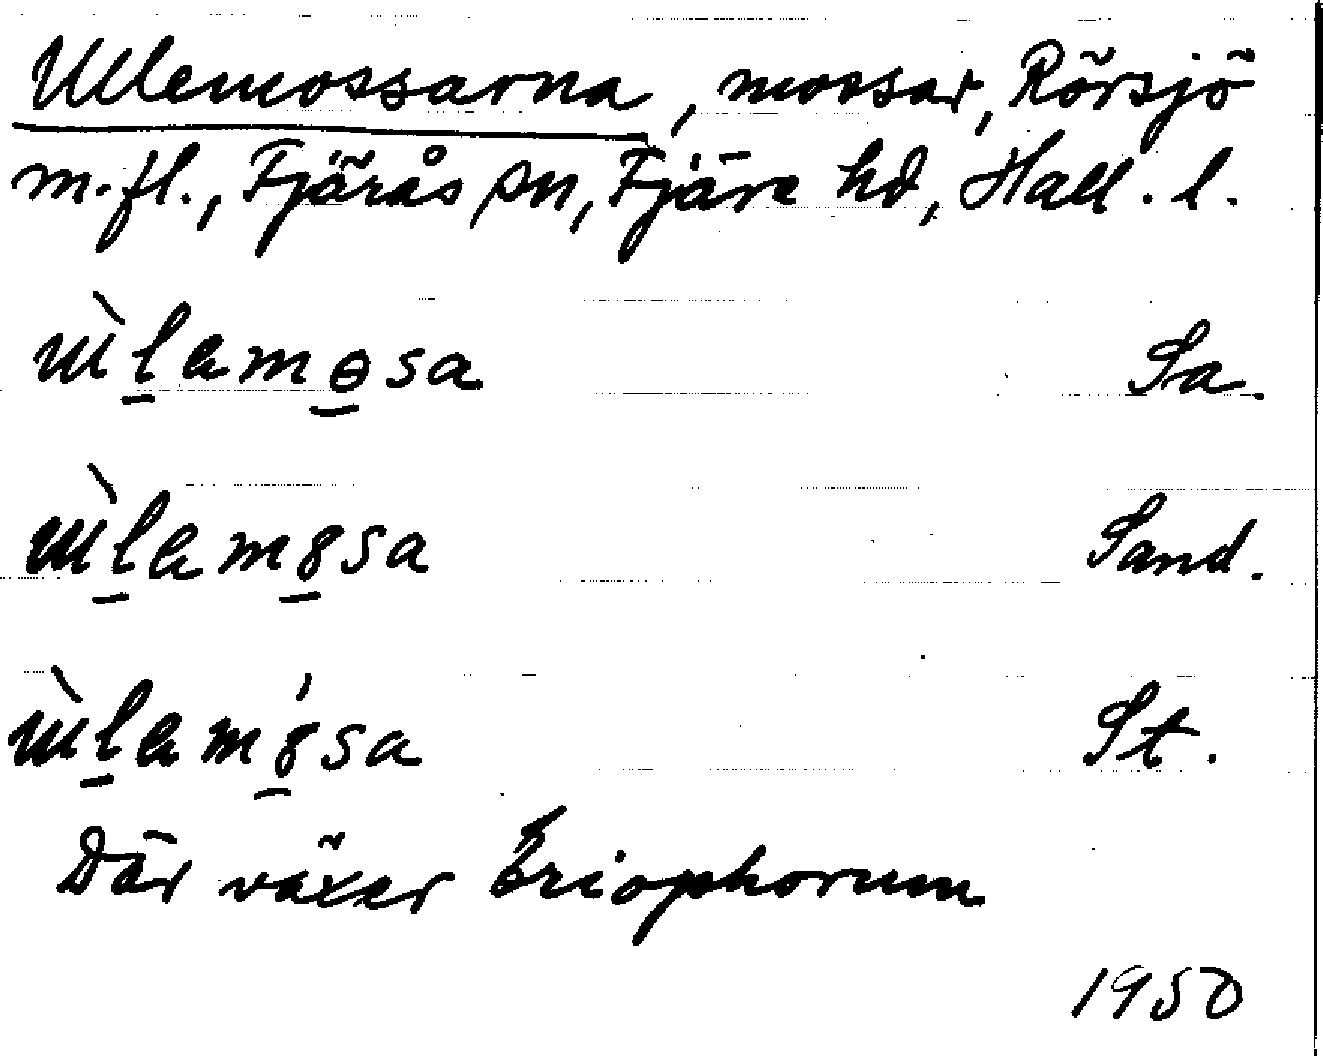 Ullemossarna, mossar, Rörsjö
m.fl., Fjärås sn, Fjäre hd, Hall. l.
ɯ̀l̠am̠ɵsa Sa.
ɯ̀l̠am̠8sa Sand.
ɯ̀l̠am̠8́sa St.
Där växer Eriophorum
1950